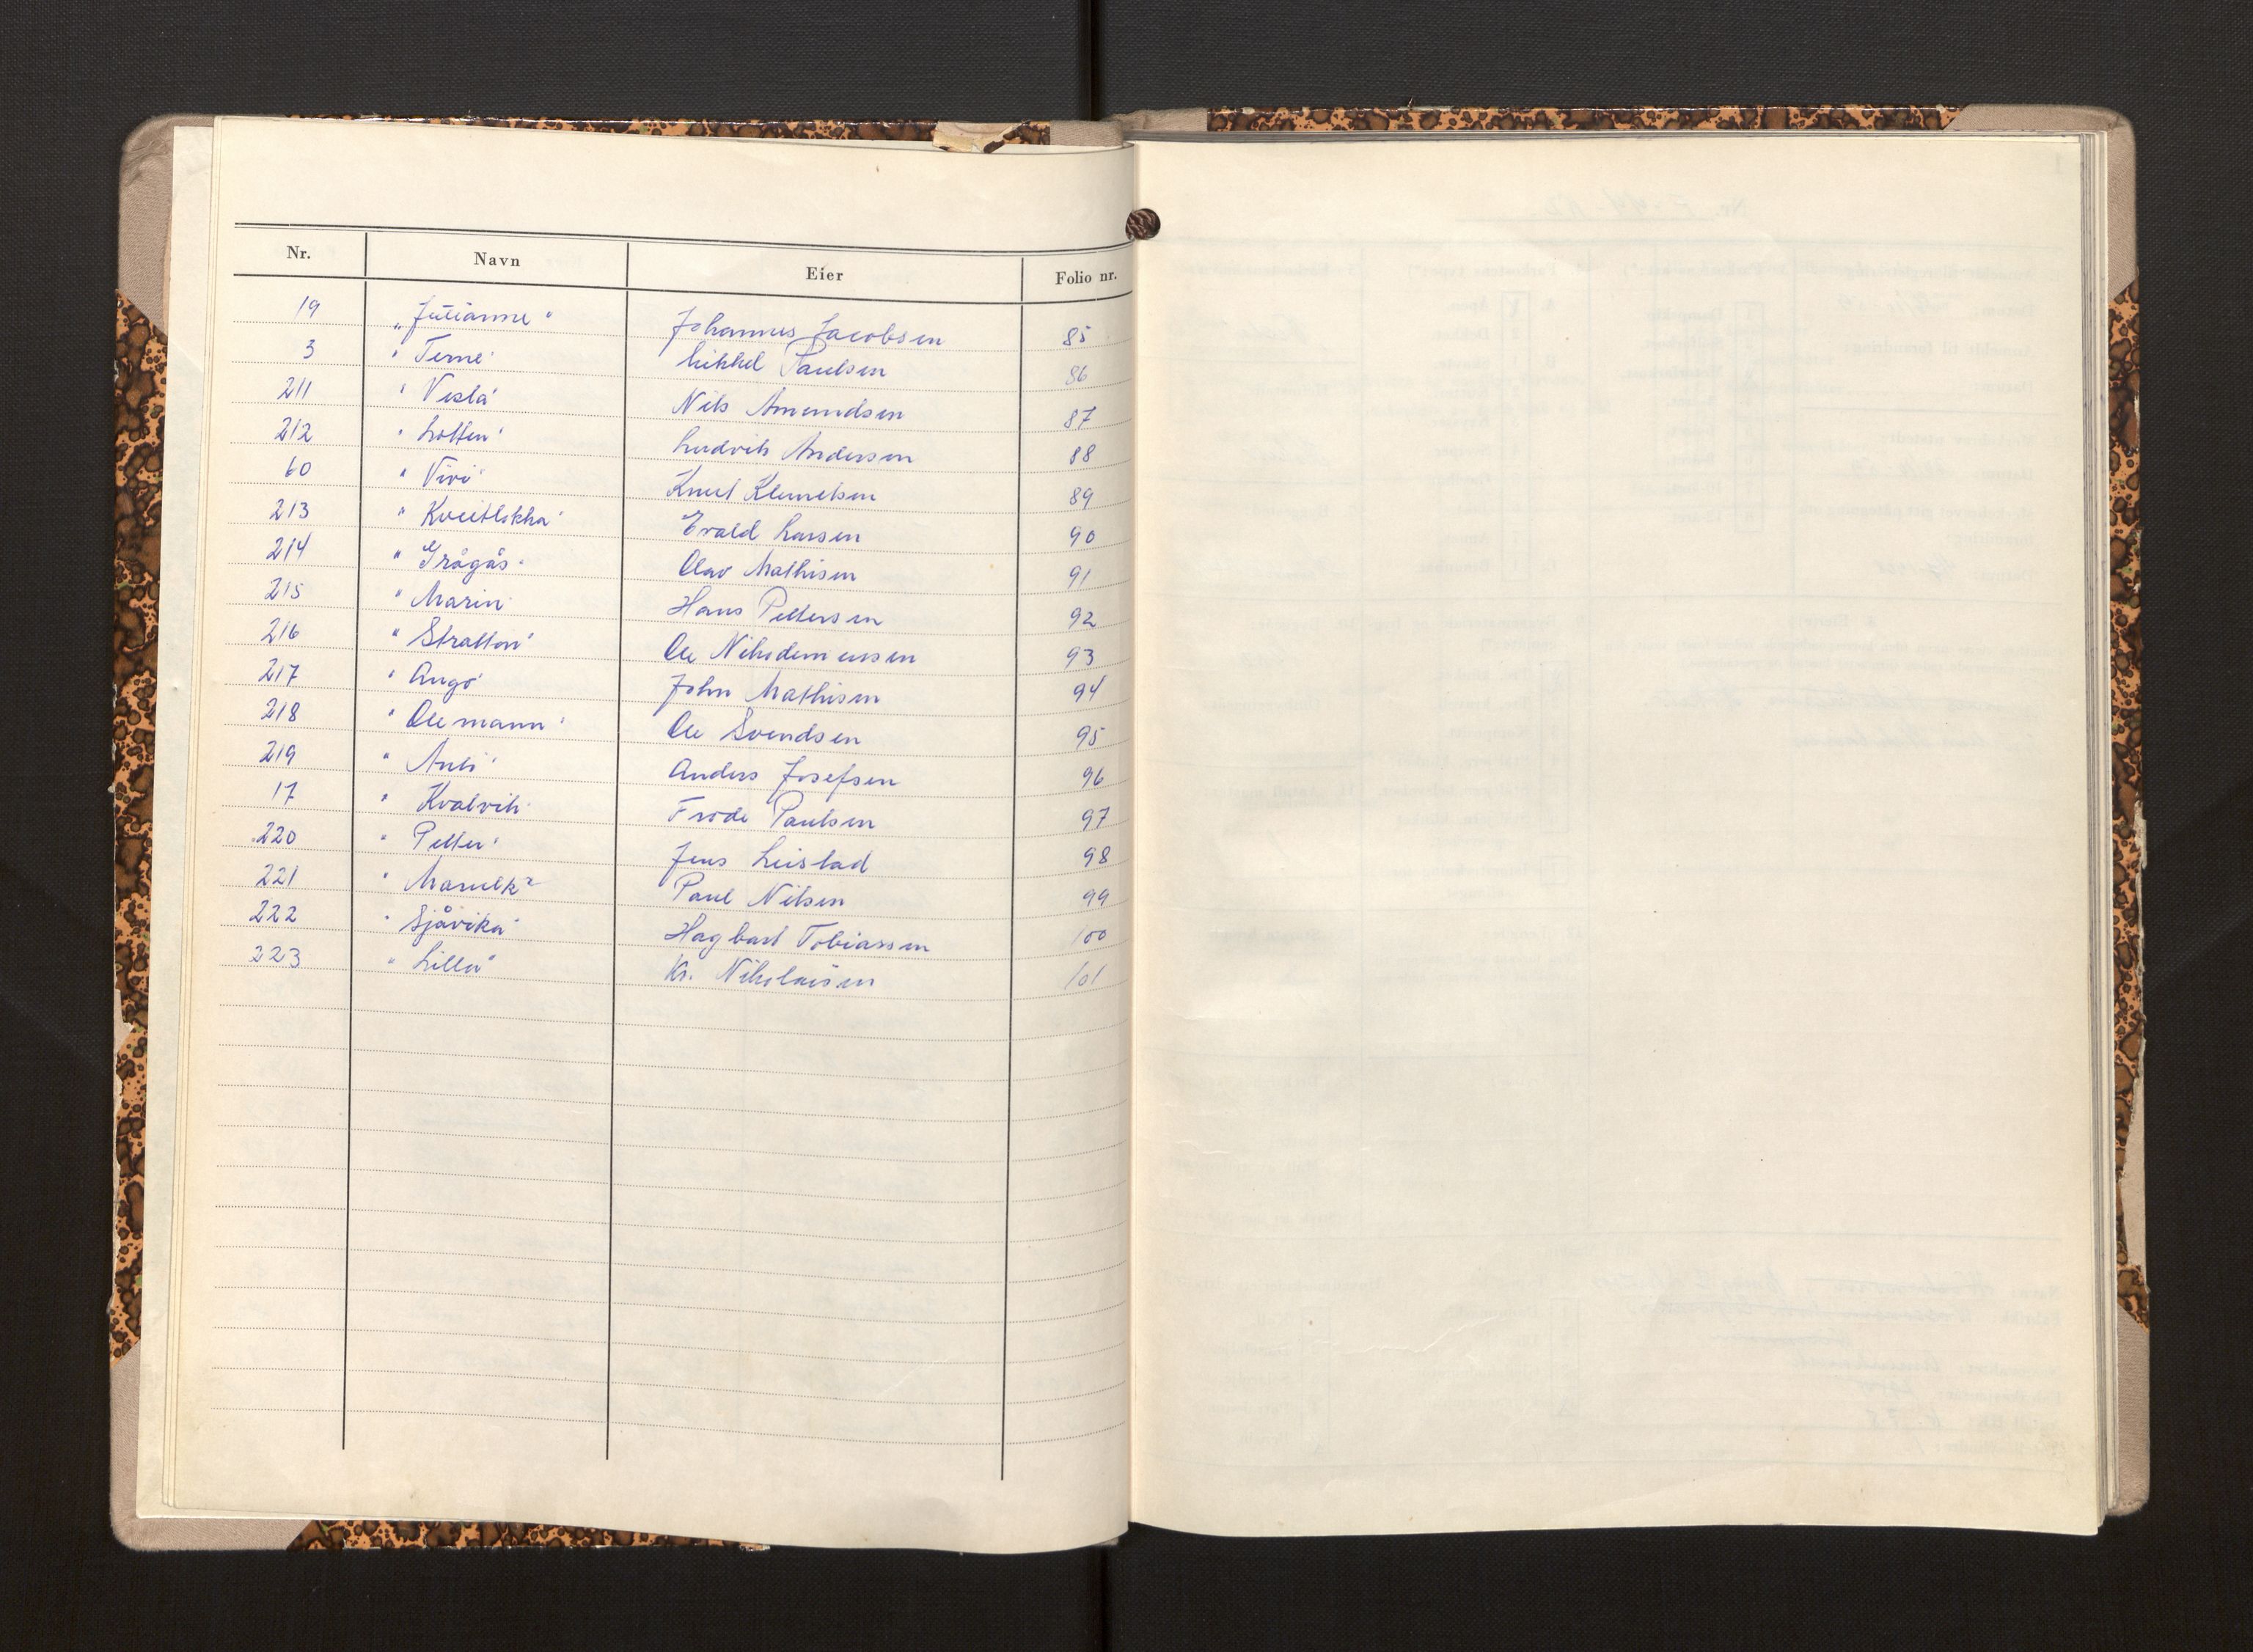 Nr. Navn Eier Folio nr.
19 „Julianne" Johannes Jacobsen 85
3 "Terne" Mikkel Paulsen 86
211 "Vesla" Nils Amundsen 87
212 "Lotten" Ludvik Andersen 88
60 "Vivi" Knut Klemetsen 89
213 "Kveitlokka" Evald Larsen 90
214 "Grågås" Olav Mathisen 91
215 "Marin" Hans Pettersen 92
216 "Stratton" Ole Nikodemussen 93
217 "Ango" John Mathisen 94
218 "Ole mann" Ole Svendsen 95
219 " Anders Josefsen 96
17 "Kvalvik" Frode Paulsen 97
220 "Petter" Jens Leistad 98
221 " Paul Nilsen 99
222 "Sjåvika" Hagbart Tobiassen 100
223 "Lilla" Kr. Nikolaisen 101